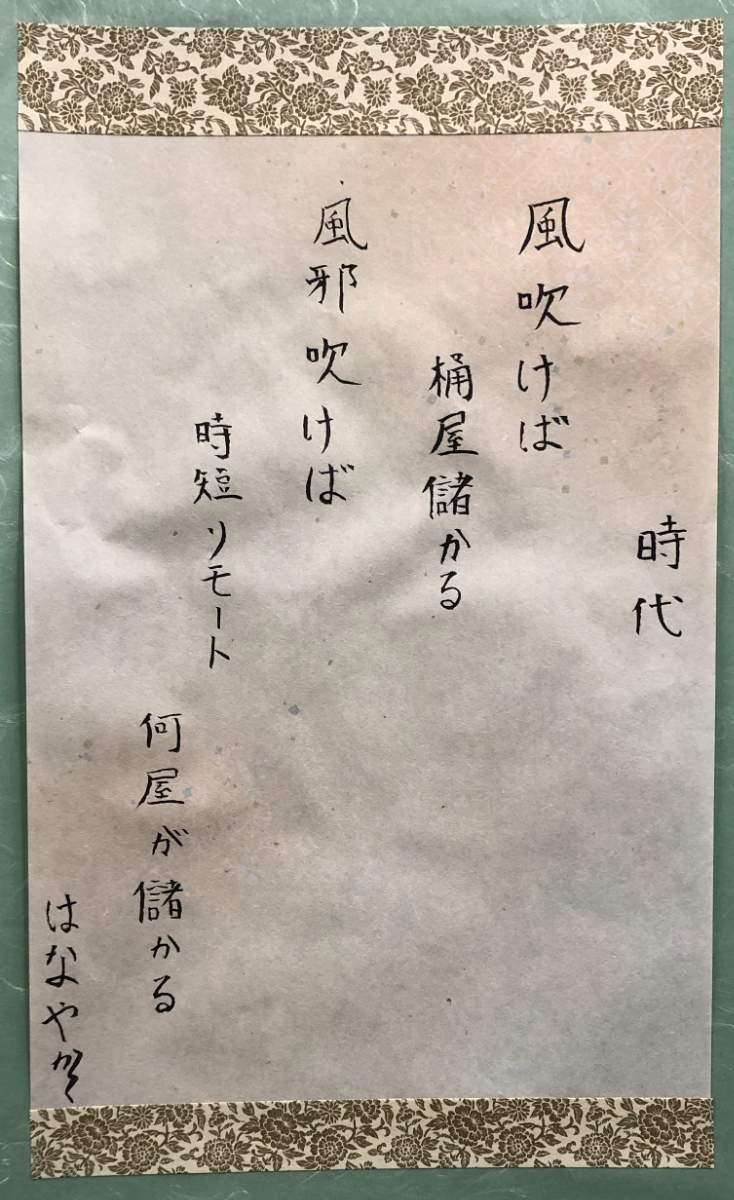 時代
風吹けば
桶屋儲かる
風邪吹けば
時短リモート
何屋が儲かる
はなやか